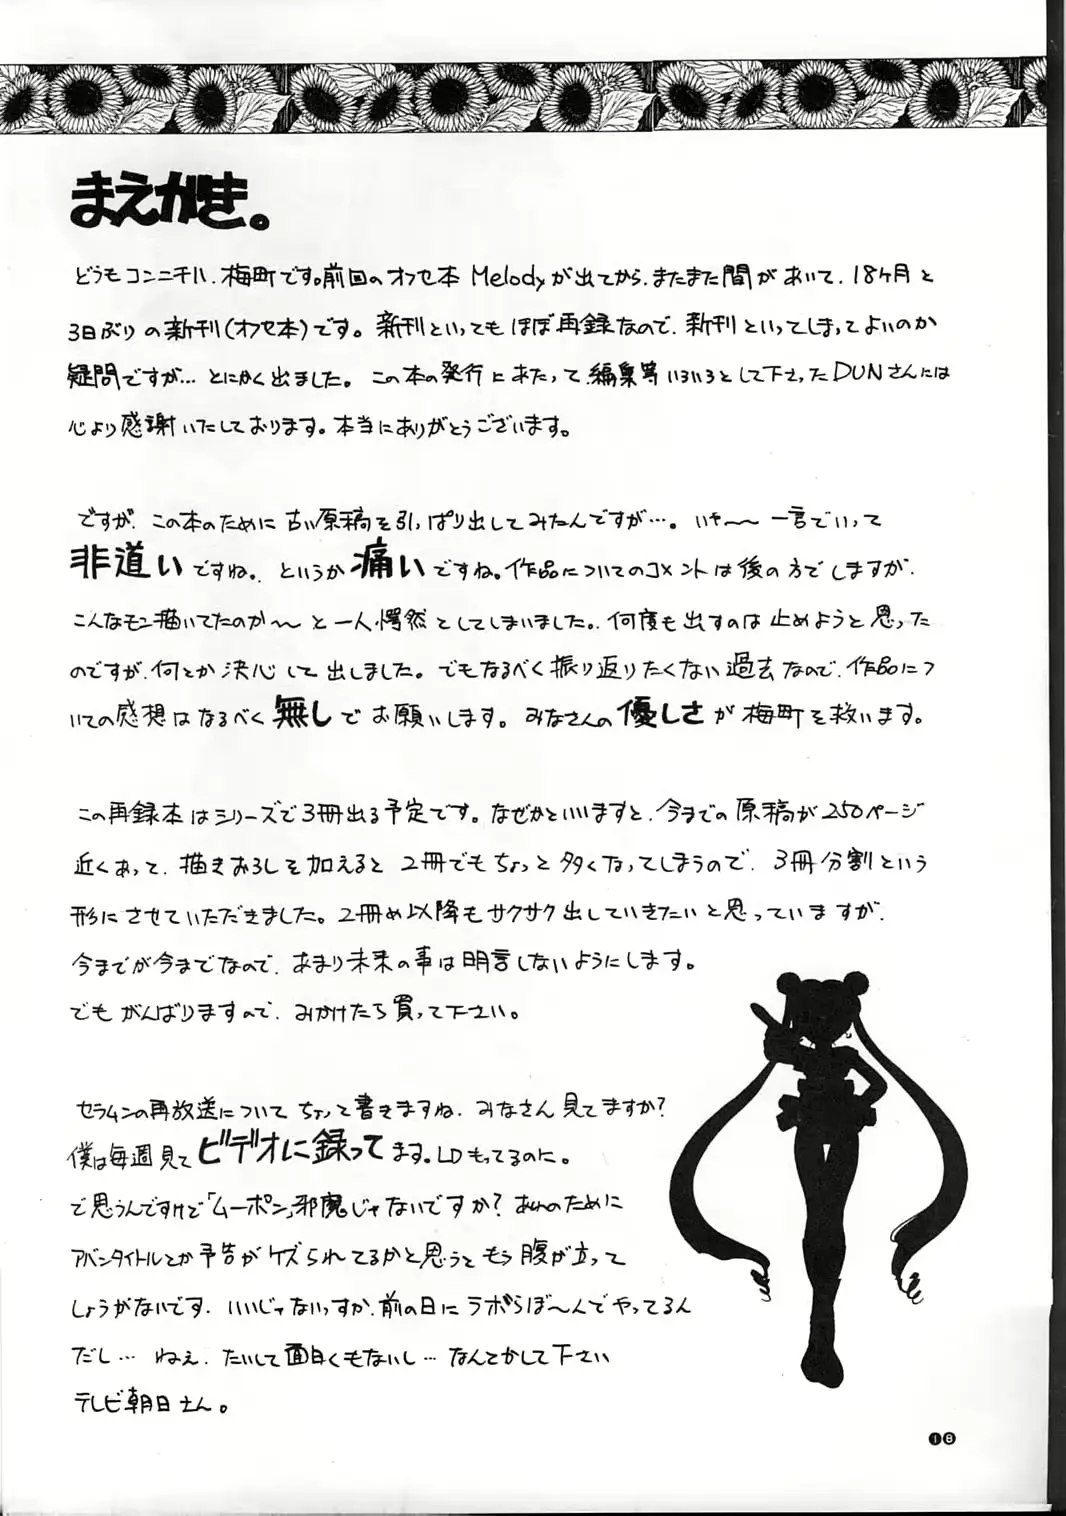 まえがき。
どうもコンニチハ、梅町です。前回のオフセ本Melodyが出てから、またまた間があいて、18ヶ月と
3日ぶりの新刊(オフセ本)です。新刊といってもほぼ再録なので、新刊といってしまってよいのか
疑問ですが…とにかく出ました。この本の発行にあたって、編集等いろいろとして下さったDUNさんには
心より感謝いたしております。本当にありがとうございます。
ですが、この本のために古い原稿を引っぱり出してみたんですが…。いや〜〜一言でいって
非道いですね。、というか痛いですね。作品についてのコメントは後の方でしますが、
こんなモン描いてたのか〜〜と一人愕然としてしまいました。、何度も出すのは止めようと思った
のですが、何とか決心して出しました。でもなるべく振り返りたくない過去なので、作品につ
いての感想はなるべく無しでお願いします。みなさんの優しさが梅町を救います。
この再録本はシリーズで3冊出る予定です。なぜかといいますと、今までの原稿が250ページ
近くあって、描きおろしを加えると2冊でもちょっと多くなってしまうので、3冊分割という
形にさせていただきました。2冊め以降もサクサク出していきたいと思っていますが、
今までが今までなので、あまり未来の事は明言しないようにします。
でもがんばりますので、みかけたら買って下さい。
セラムンの再放送についてちょって書きますね、みなさん見てますか?
僕は毎週見てビデオに録ってます。LDもってるのに。
で思うんですけど「ムーポン」邪魔じゃないですか?あれのために
アバンタイトルとか予告がケズられてるかと思うともう腹が立って
しょうがないです、いいじゃないっすか、前の日にラボらぼ〜んでやってるん
だし…ねぇ、たいして面白くもないし…なんとかして下さい
テレビ朝日さん。
18